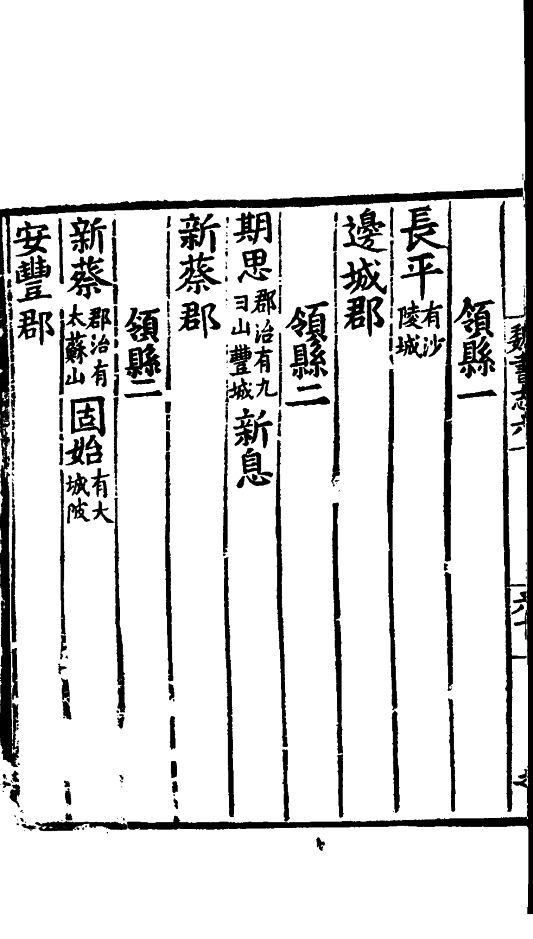 魏書志六
領縣一
長平有沙陵城
邊城郡
領縣二
期思郡治有九日山豐城新息
新蔡郡
領縣二
新蔡郡治有太蘇山固始有大城陂
安豐郡